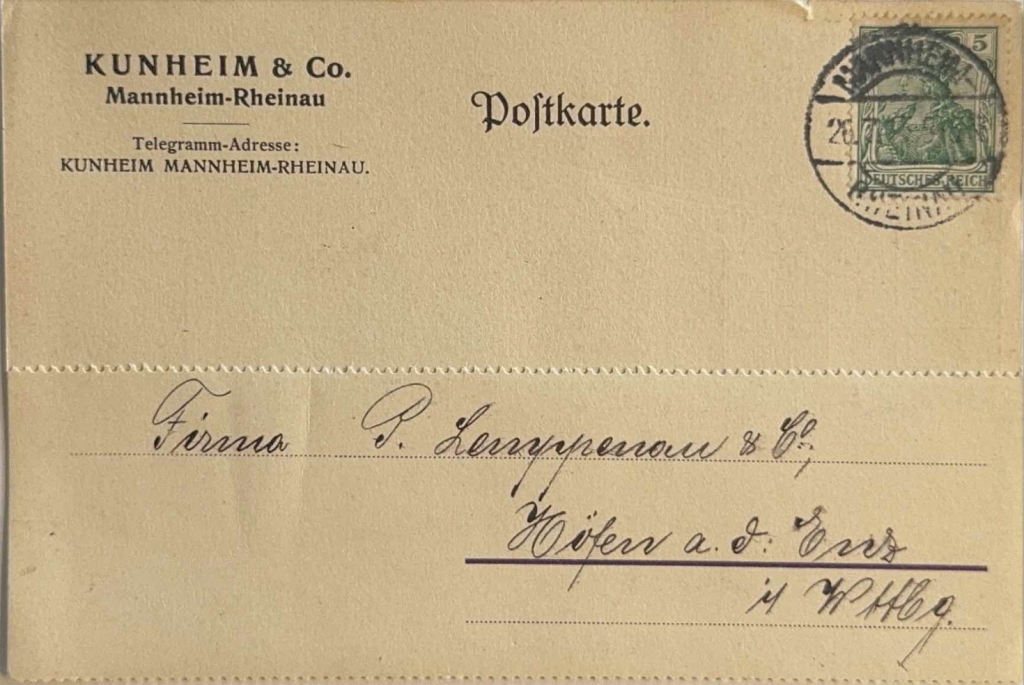 KUNHEIM & Co.
Mannheim-Rheinau
Telegramm-Adresse:
KUNHEIM MANNHEIM-RHEINAU.
Poſtkarte.
5
DEUTSCHES REICH
MANNHEIM-
26.7.
RHEINAU
Firma P. Lemppenau & Co.,
Höfen a. d. Enz
i/ Wttbg.